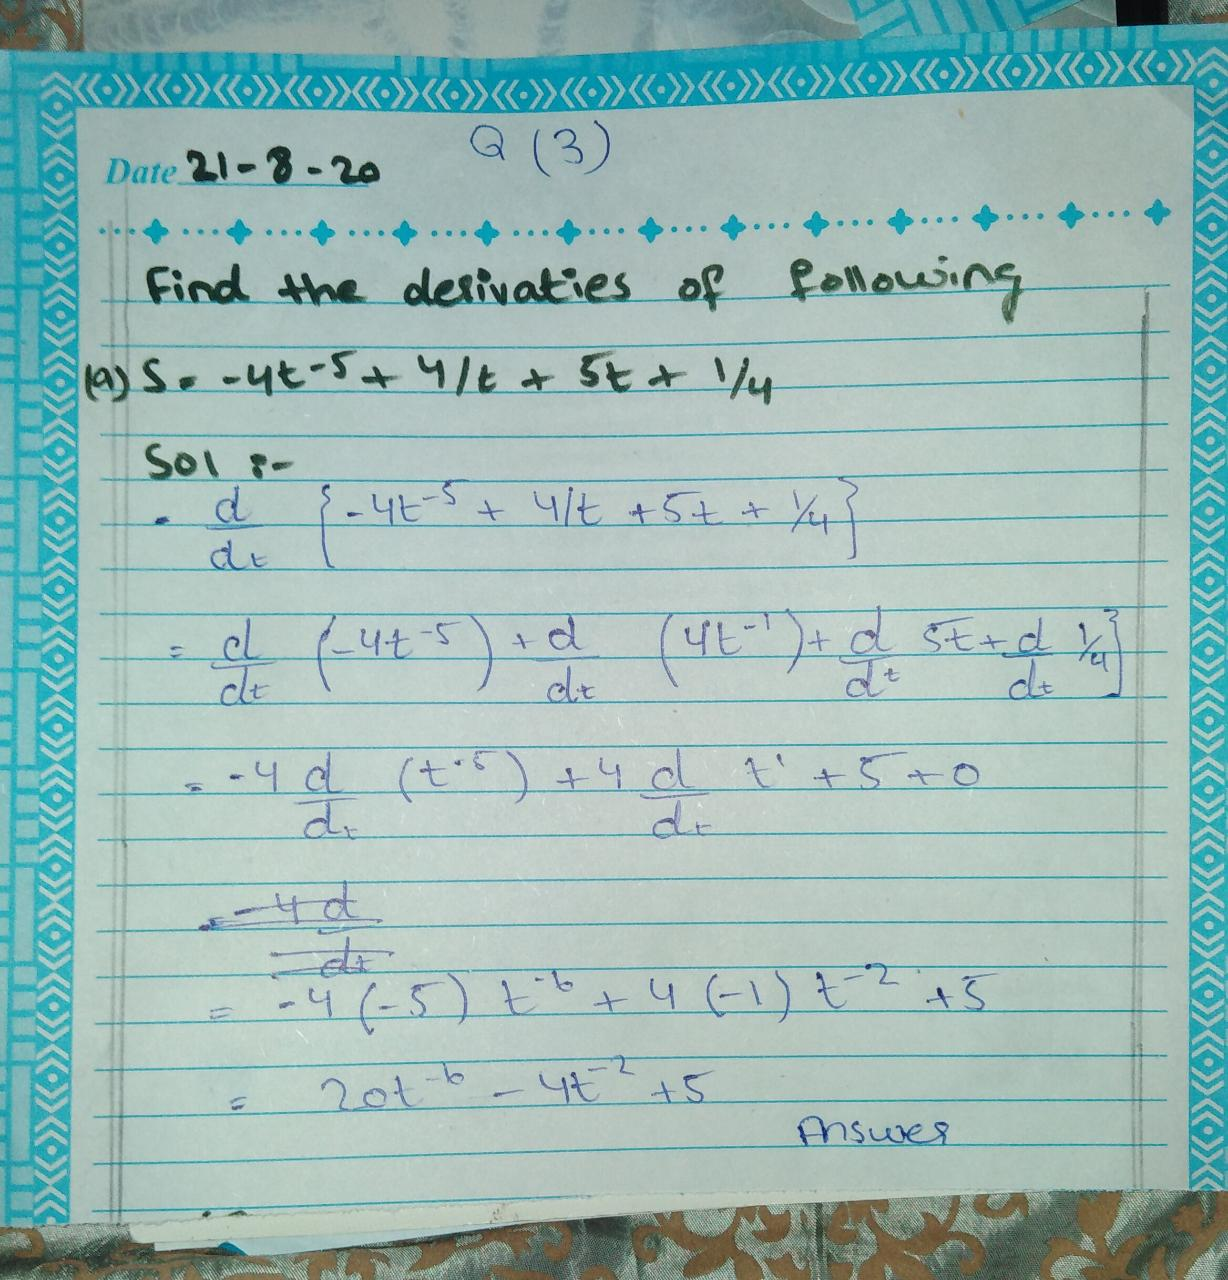 Q (3)
Date 21-8-20
Find the derivaties of following
(a) S = -4t-5 + 4/t + 5t + 1/4
Sol :-
= d/dt {-4t-5 + 4/t + 5t + 1/4}
= d/dt (-4t-5) + d/dt (4t-1) + d/dt 5t + d/dt 1/4}
= -4 d/dt (t-5) + 4 d/dt t' + 5 + 0
= -4 d/dt
= -4 (-5) t-6 + 4 (-1) t-2 + 5
= 20t-6 - 4t-2 + 5
Answer